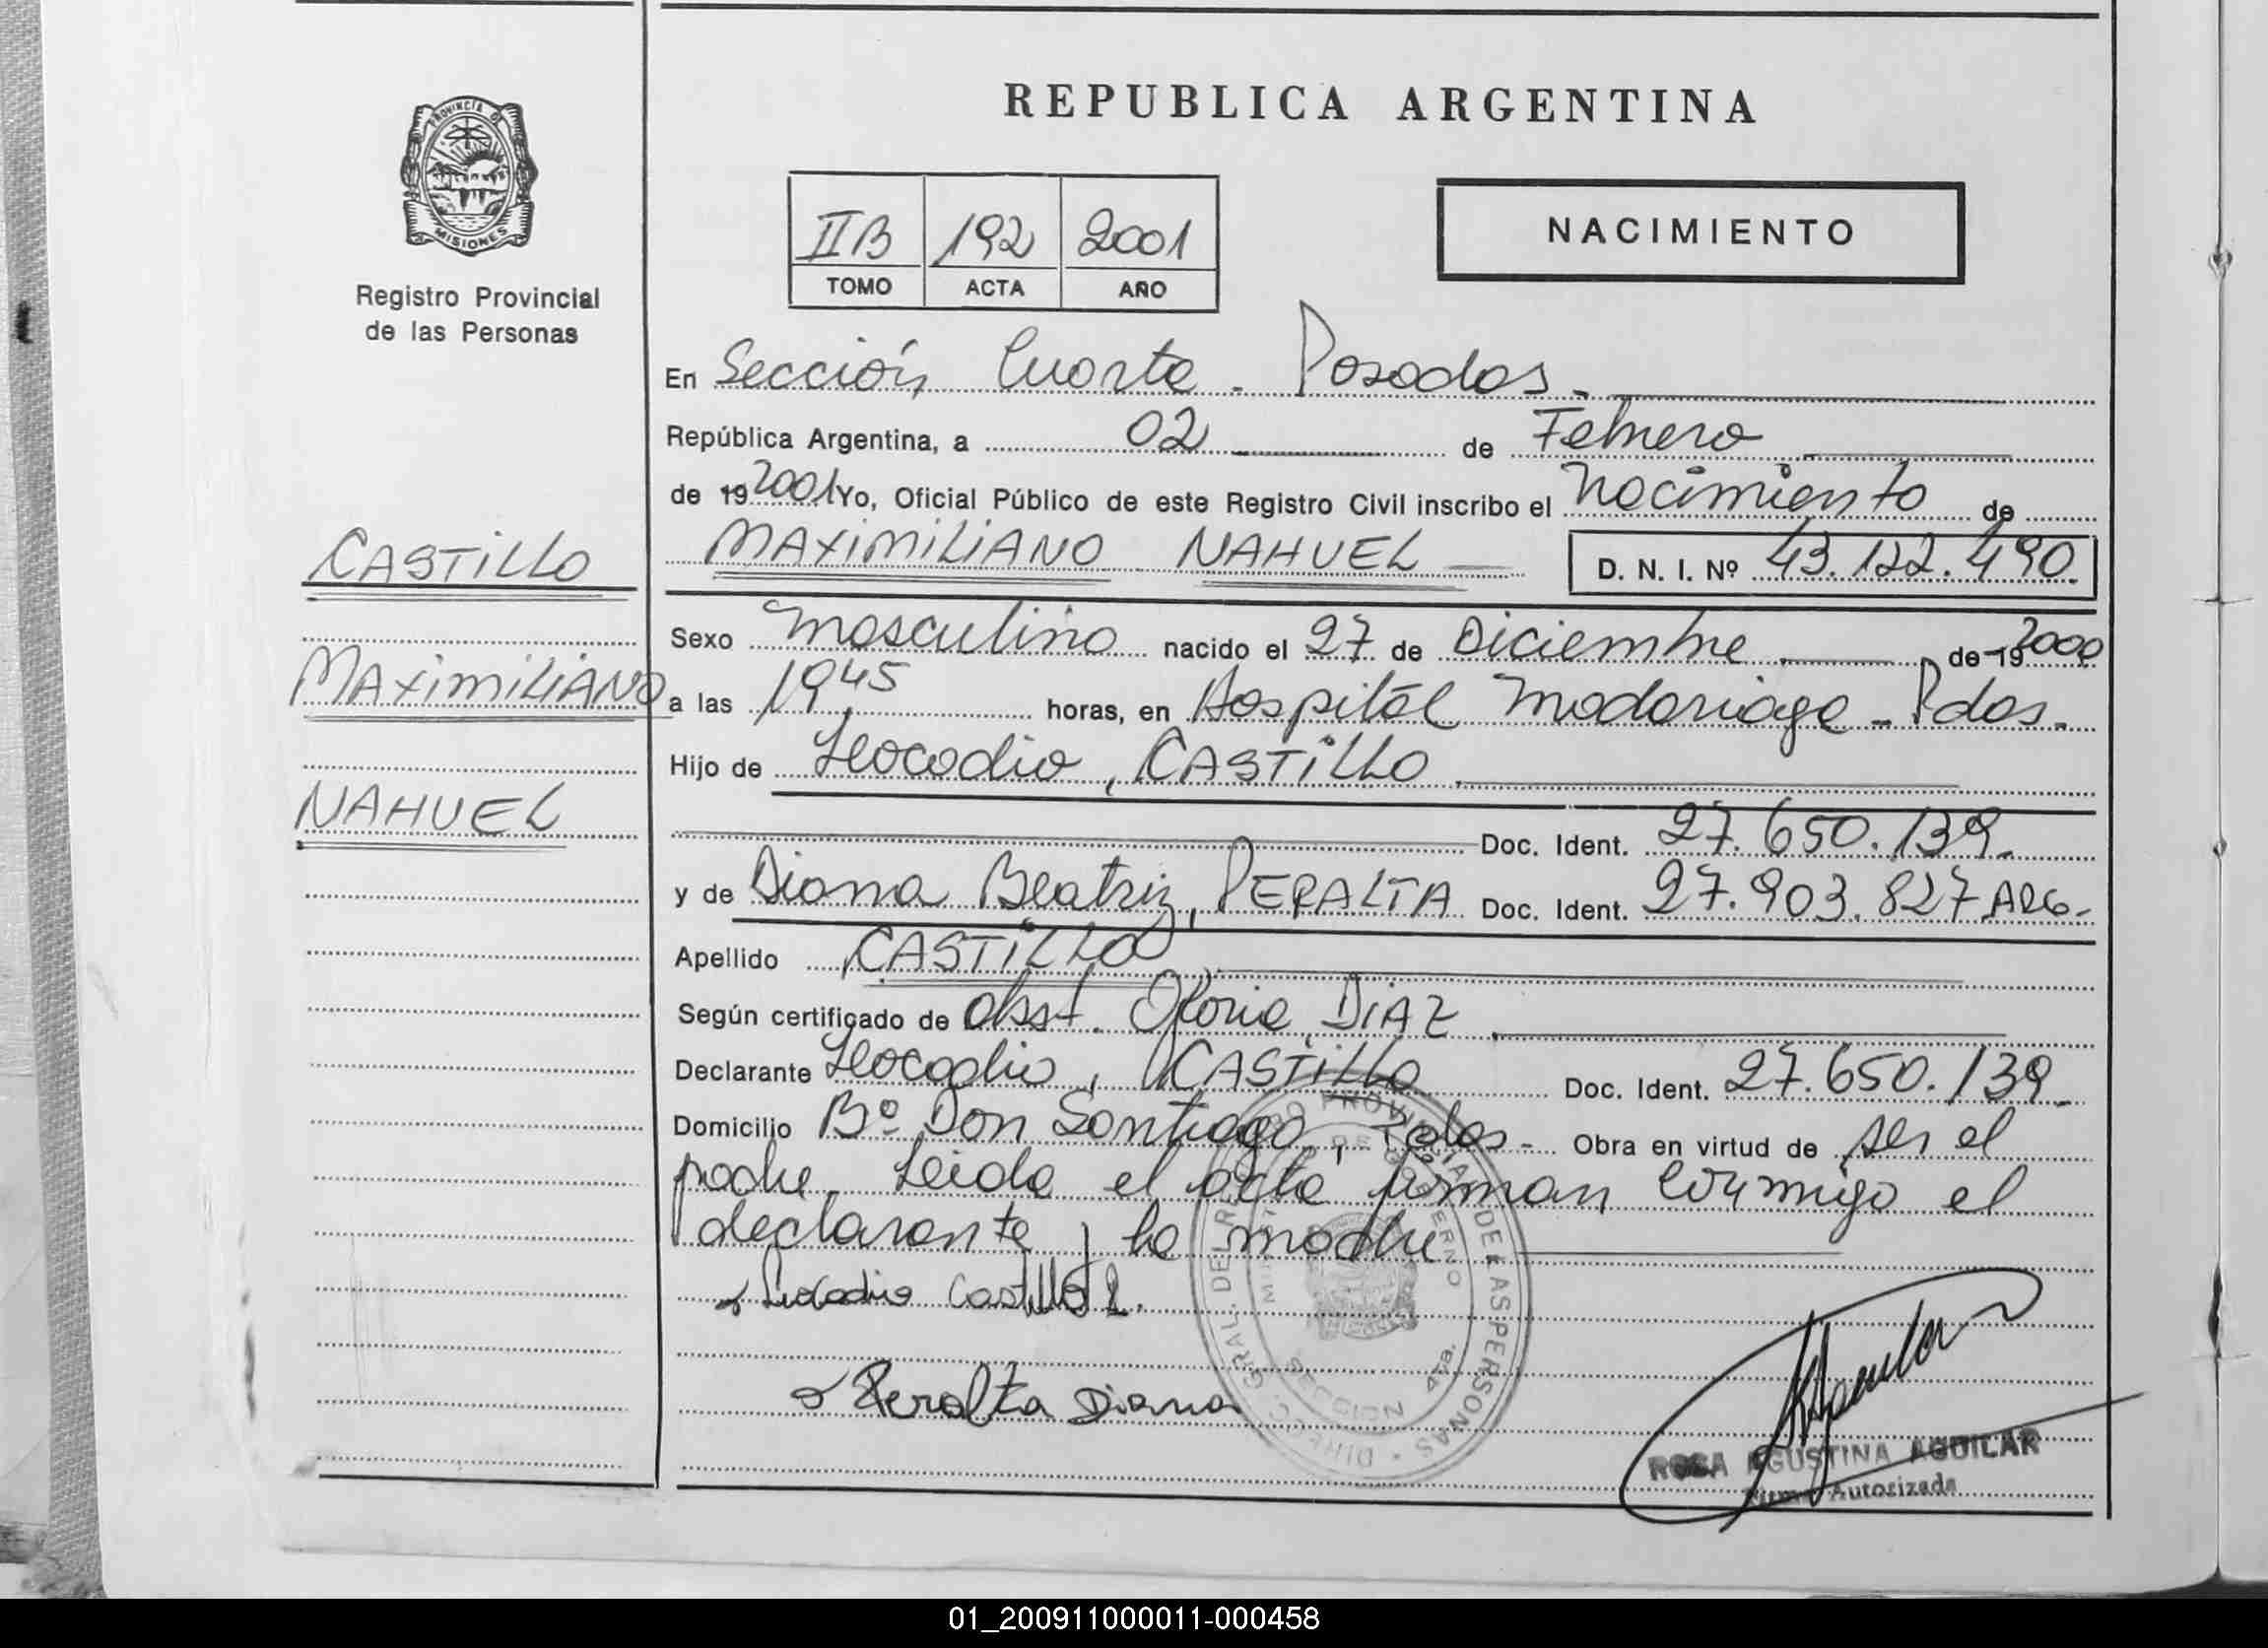 PROVINCIA DE
MISIONES
Registro Provincial
de las Personas
CASTILLO
MAXIMILIANO
NAHUEL
REPUBLICA ARGENTINA
IIB 192 2001
TOMO ACTA AÑO
NACIMIENTO
En Sección Cuarta - Posadas -
República Argentina, a 02 de Febrero
de 19 2001 Yo, Oficial Público de este Registro Civil inscribo el Nacimiento de
MAXIMILIANO NAHUEL D. N. I. Nº 43.122.490
Sexo Masculino nacido el 27 de Diciembre de 19 2000
a las 19 45 horas, en Hospital Madariaga - Pdas.
Hijo de Leocadio, CASTILLO
Doc. Ident. 27.650.139.
y de Diana Beatriz, PERALTA Doc. Ident. 27.903.827 ARG.
Apellido CASTILLO
Según certificado de obst. Gloria DIAZ
Declarante Leocadio, CASTILLO Doc. Ident. 27.650.139.
Domicilio Bº Don Santiago, Pdas - Obra en virtud de ser el
padre. Leida el acta firman conmigo el
declarante y la madre
Leocadio Castillo
Peralta Diana
SECCION 4ta.
ROSA AGUSTINA AGUILAR
Firma Autorizada
01_200911000011-000458